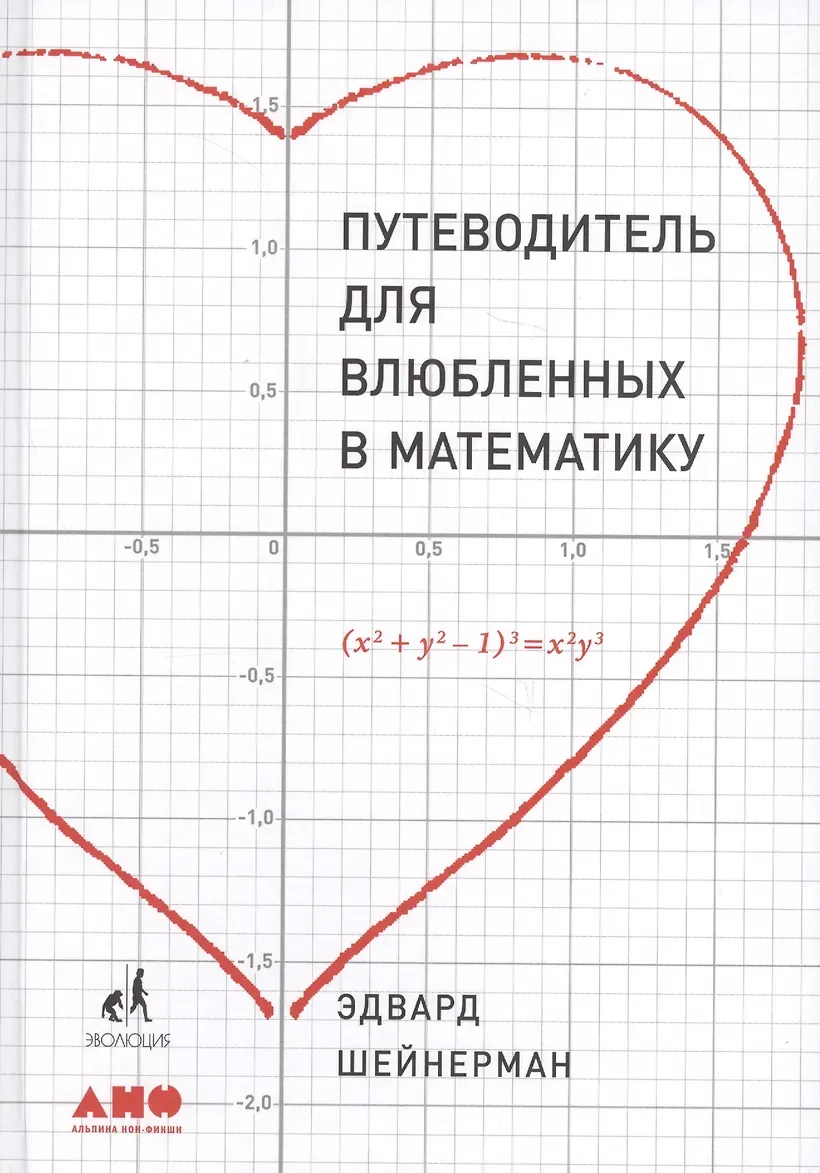 1,5
ПУТЕВОДИТЕЛЬ
1,0
ДЛЯ
ВЛЮБЛЕННЫХ
0,5
В МАТЕМАТИКУ
-0,5 0 0,5 1,0 1,5
(x² + y² – 1)³=x²y³
-0,5
-1,0
-1,5
ЭДВАРД
ШЕЙНЕРМАН
ЭВОЛЮЦИЯ
-2,0
АНФ
АЛЬПИНА НОН-ФИКШН